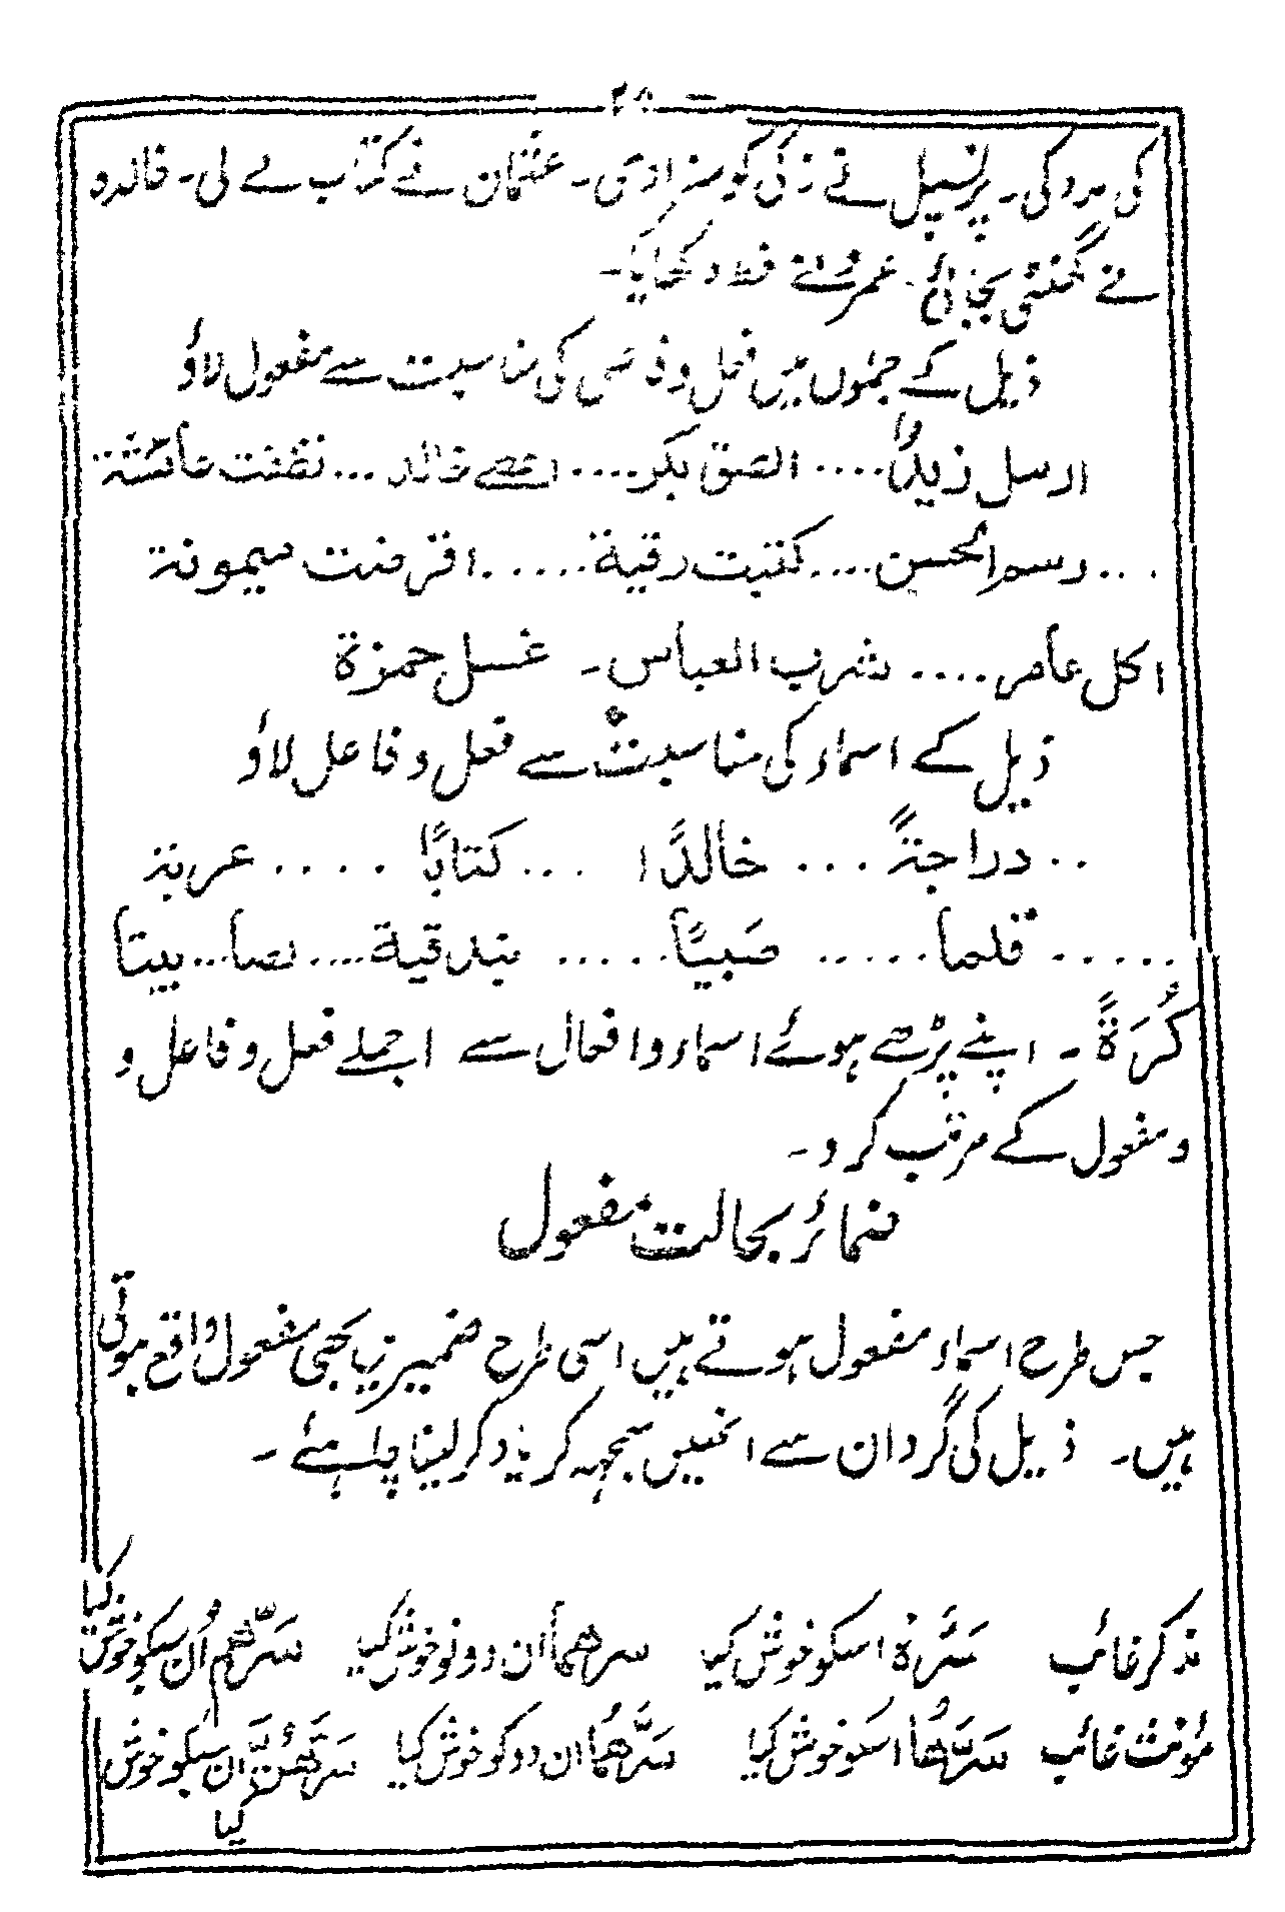 ۳۸
کی مدد کی۔ پرنسپل نے زکی کو سزا دی۔ عثمان نے کتاب لے لی۔ خالدہ
نے گھنٹی بجائی۔ عمر نے دکھایا۔
ذیل کے جملوں میں فعل و فاعل کی مناسبت سے مفعول لاؤ
ارسل زیداً .... الصق بکر .... خالد ... نظفت عائشة
... رسم الحسن .... کتبت رقیة ..... اقرضت میمونة
اکل عامر .... شرب العباس۔ غسل حمزة
ذیل کے اسماء کی مناسبت سے فعل و فاعل لاؤ
.. دراجةً ... خالدًا ... کتابًا .... عربة
..... قلما ..... صَبیًّا ..... بندقیة .... نصا ... بیتا
کُرَةً ۔ اپنے پڑھے ہوئے اسماء و افعال سے ا جملے فعل و فاعل و
و مفعول کے مرتب کرو۔
ضمائر بحالت مفعول
جس طرح اسماء مفعول ہوتے ہیں اسی طرح ضمیریں بھی مفعول واقع ہوتی
ہیں۔ ذیل کی گردان سے انھیں سمجھ کر یاد کر لینا چاہئے ۔
مذکر غائب سَرَّہٗ اسکو خوش کیا سرھما ان دونو خوش کیا سَرَّھم اُن سبکو خوش کیا
مؤنث غائب سَرَّھَا اسکو خوش کیا سَرَّھُمَا ان دو کو خوش کیا سَرَّھُنَّ ان سبکو خوش
کیا